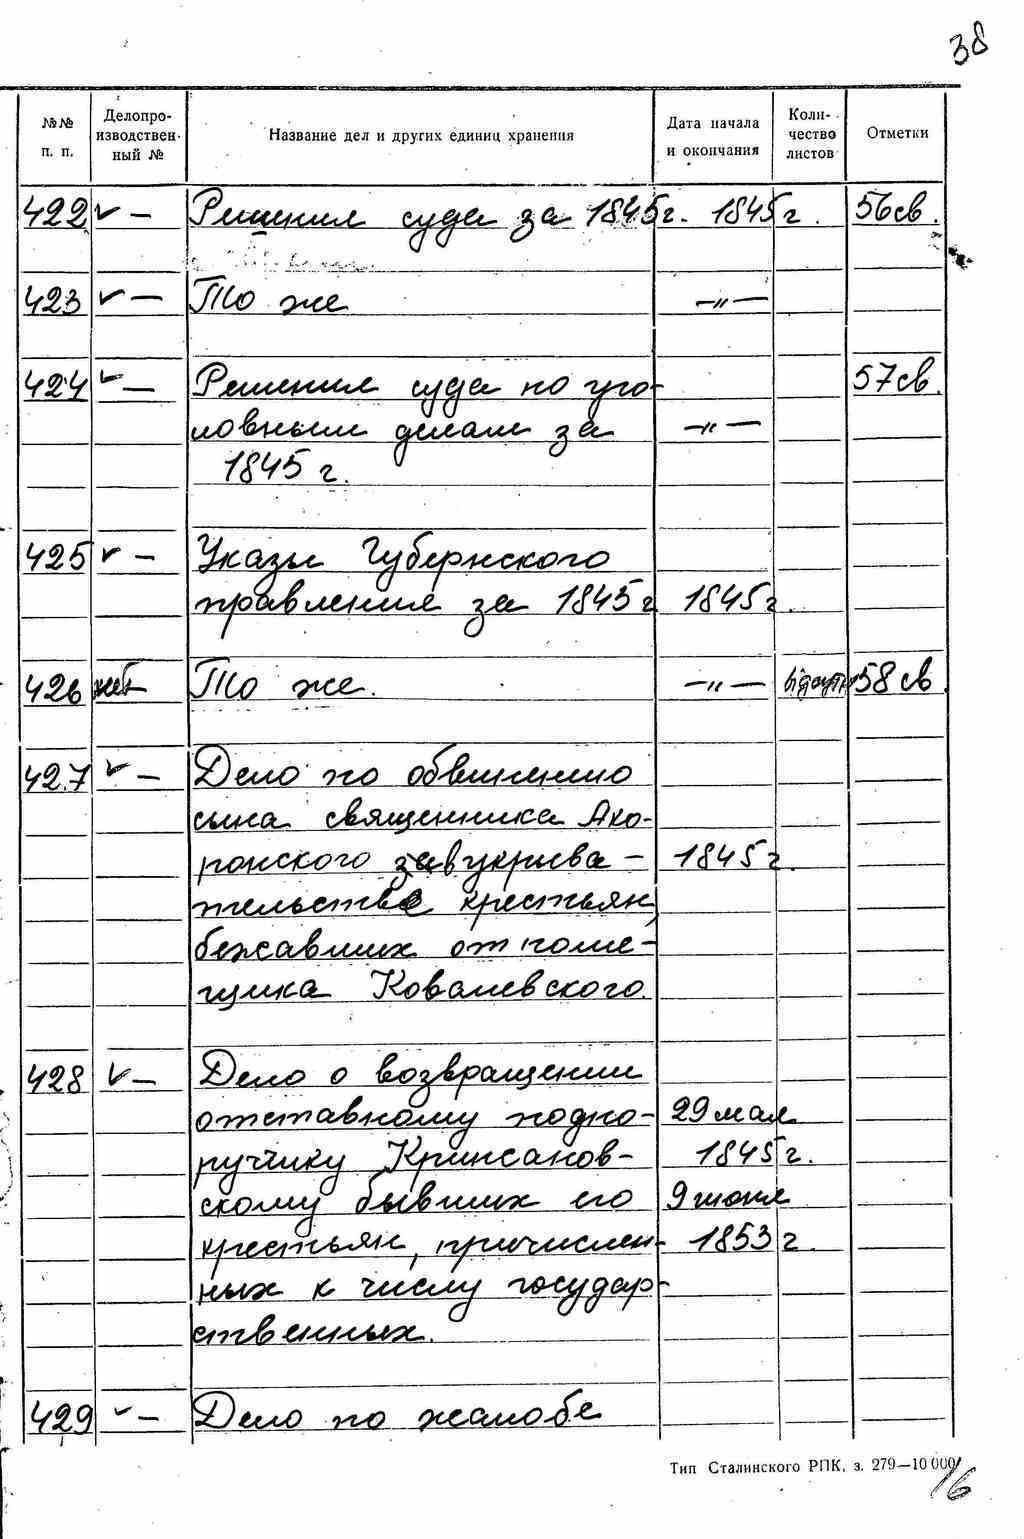 38
№№ п. п. Делопро-изводствен-ный № Название дел и других единиц хранения Дата начала и окончания Коли-чество листов Отметки
422 ✓ — Решения суда за 1845г. 1845г. 56св.
423 ✓ — То же —"—
424 ✓ — Решения суда по уго- 57св.
ловным делам за —"—
1845 г.
425 ✓ — Указы Губернского
правления за 1845г 1845г.
426 нет То же. —"— 58 св.
427 ✓ — Дело по обвинению
сына священника Ако-
ронского за укрыва- 1845г.
тельство крестьян,
бежавших от поме-
щика Ковалевского.
428 ✓ — Дело о возвращении
отставному подпо- 29 мая
ручику Криксанов- 1845г.
скому бывших его 9 июня
крестьян, причислен- 1853г.
ных к числу государ-
ственных.
429 ✓ — Дело по жалобе
Тип Сталинского РПК, з. 279—10 000